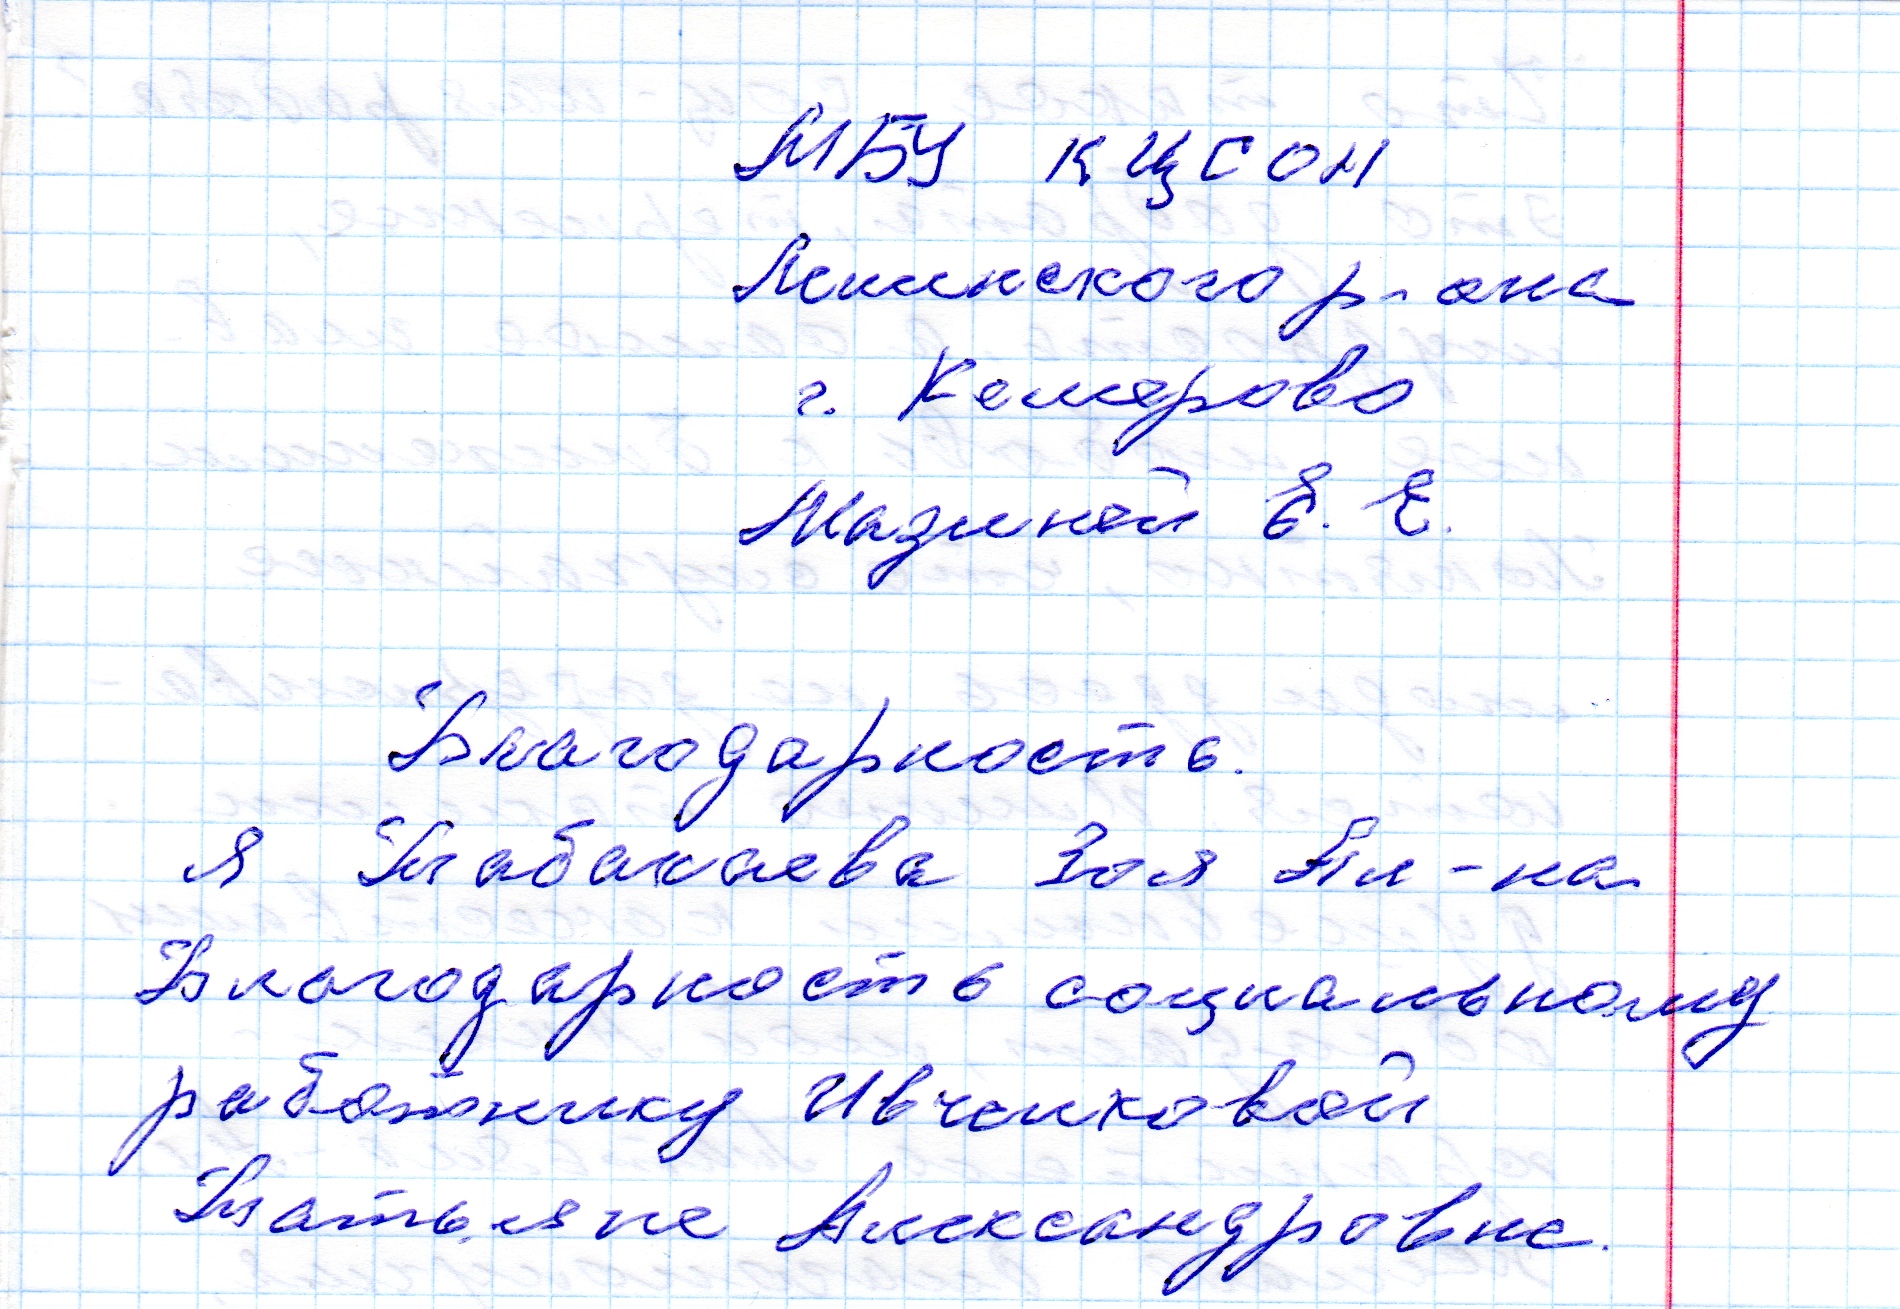 МБУ КЦСОН
Ленинского р-она
г. Кемерово
Мазиной Е. Е.
Благодарность.
я Табакаева Зоя Ал-на
Благодарность социальному
работнику Ивченковой
Татьяне Александровне.